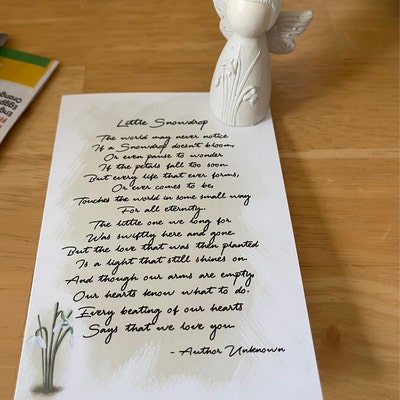 Little Snowdrop
The world may never notice
If a Snowdrop doesn't bloom,
Or even pause to wonder
If the petals fall too soon.
But every life that ever forms,
Or ever comes to be,
Touches the world in some small way
For all eternity.
The little one we long for
Was swiftly here and gone.
But the love that was then planted
Is a light that still shines on.
And though our arms are empty,
Our hearts know what to do.
Every beating of our hearts
Says that we love you.
- Author Unknown